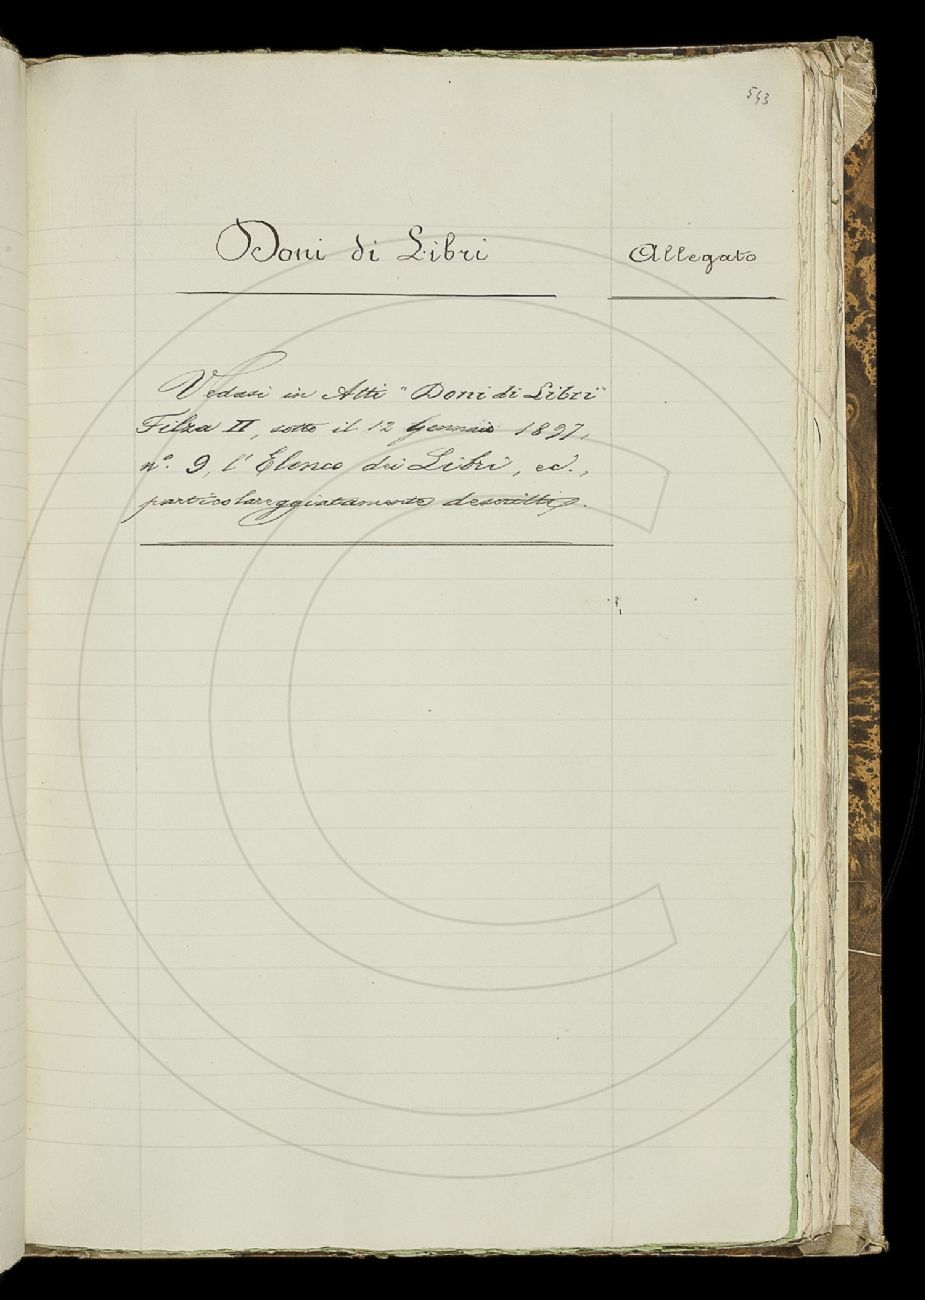 543
Doni di Libri
Allegato
Vedasi in Atti "Doni di Libri"
Filza II, sotto il 12 Gennaio 1897,
n.° 9, l'Elenco dei Libri, ec.,
particolareggiatamente descritti.